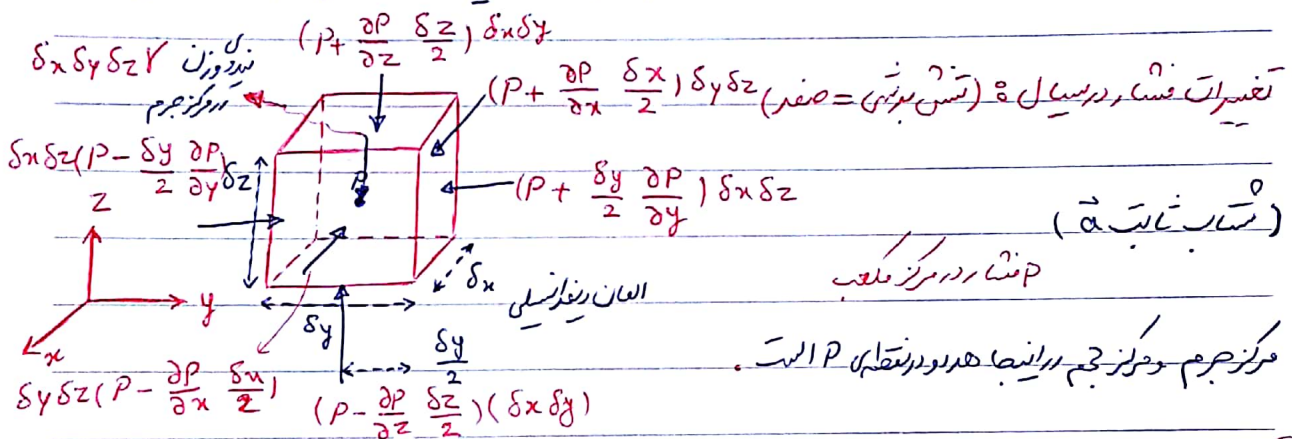 (P + ∂P/∂z δz/2) δxδy
δxδyδzγ نیروی وزن
در مرکز جرم
(P + ∂P/∂x δx/2) δyδz
تغییرات فشار در سیال : (تنش برشی = صفر)
δxδz(P - δy/2 ∂P/∂y)
δz
P
(P + δy/2 ∂P/∂y) δxδz
(شتاب ثابت a⃗)
z
y
x
δx
P فشار در مرکز مکعب
المان دیفرانسیلی
δy
δy/2
مرکز جرم و مرکز حجم در اینجا هر دو در نقطه‌ی P است.
δyδz(P - ∂P/∂x δx/2)
(P - ∂P/∂z δz/2)(δxδy)